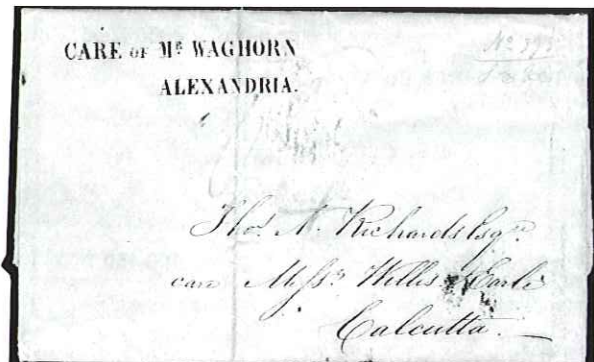 CARE OF Mʀ. WAGHORN
ALEXANDRIA.
Thos. N. Richards Esqre.
care Messrs. Willis & Earle
Calcutta